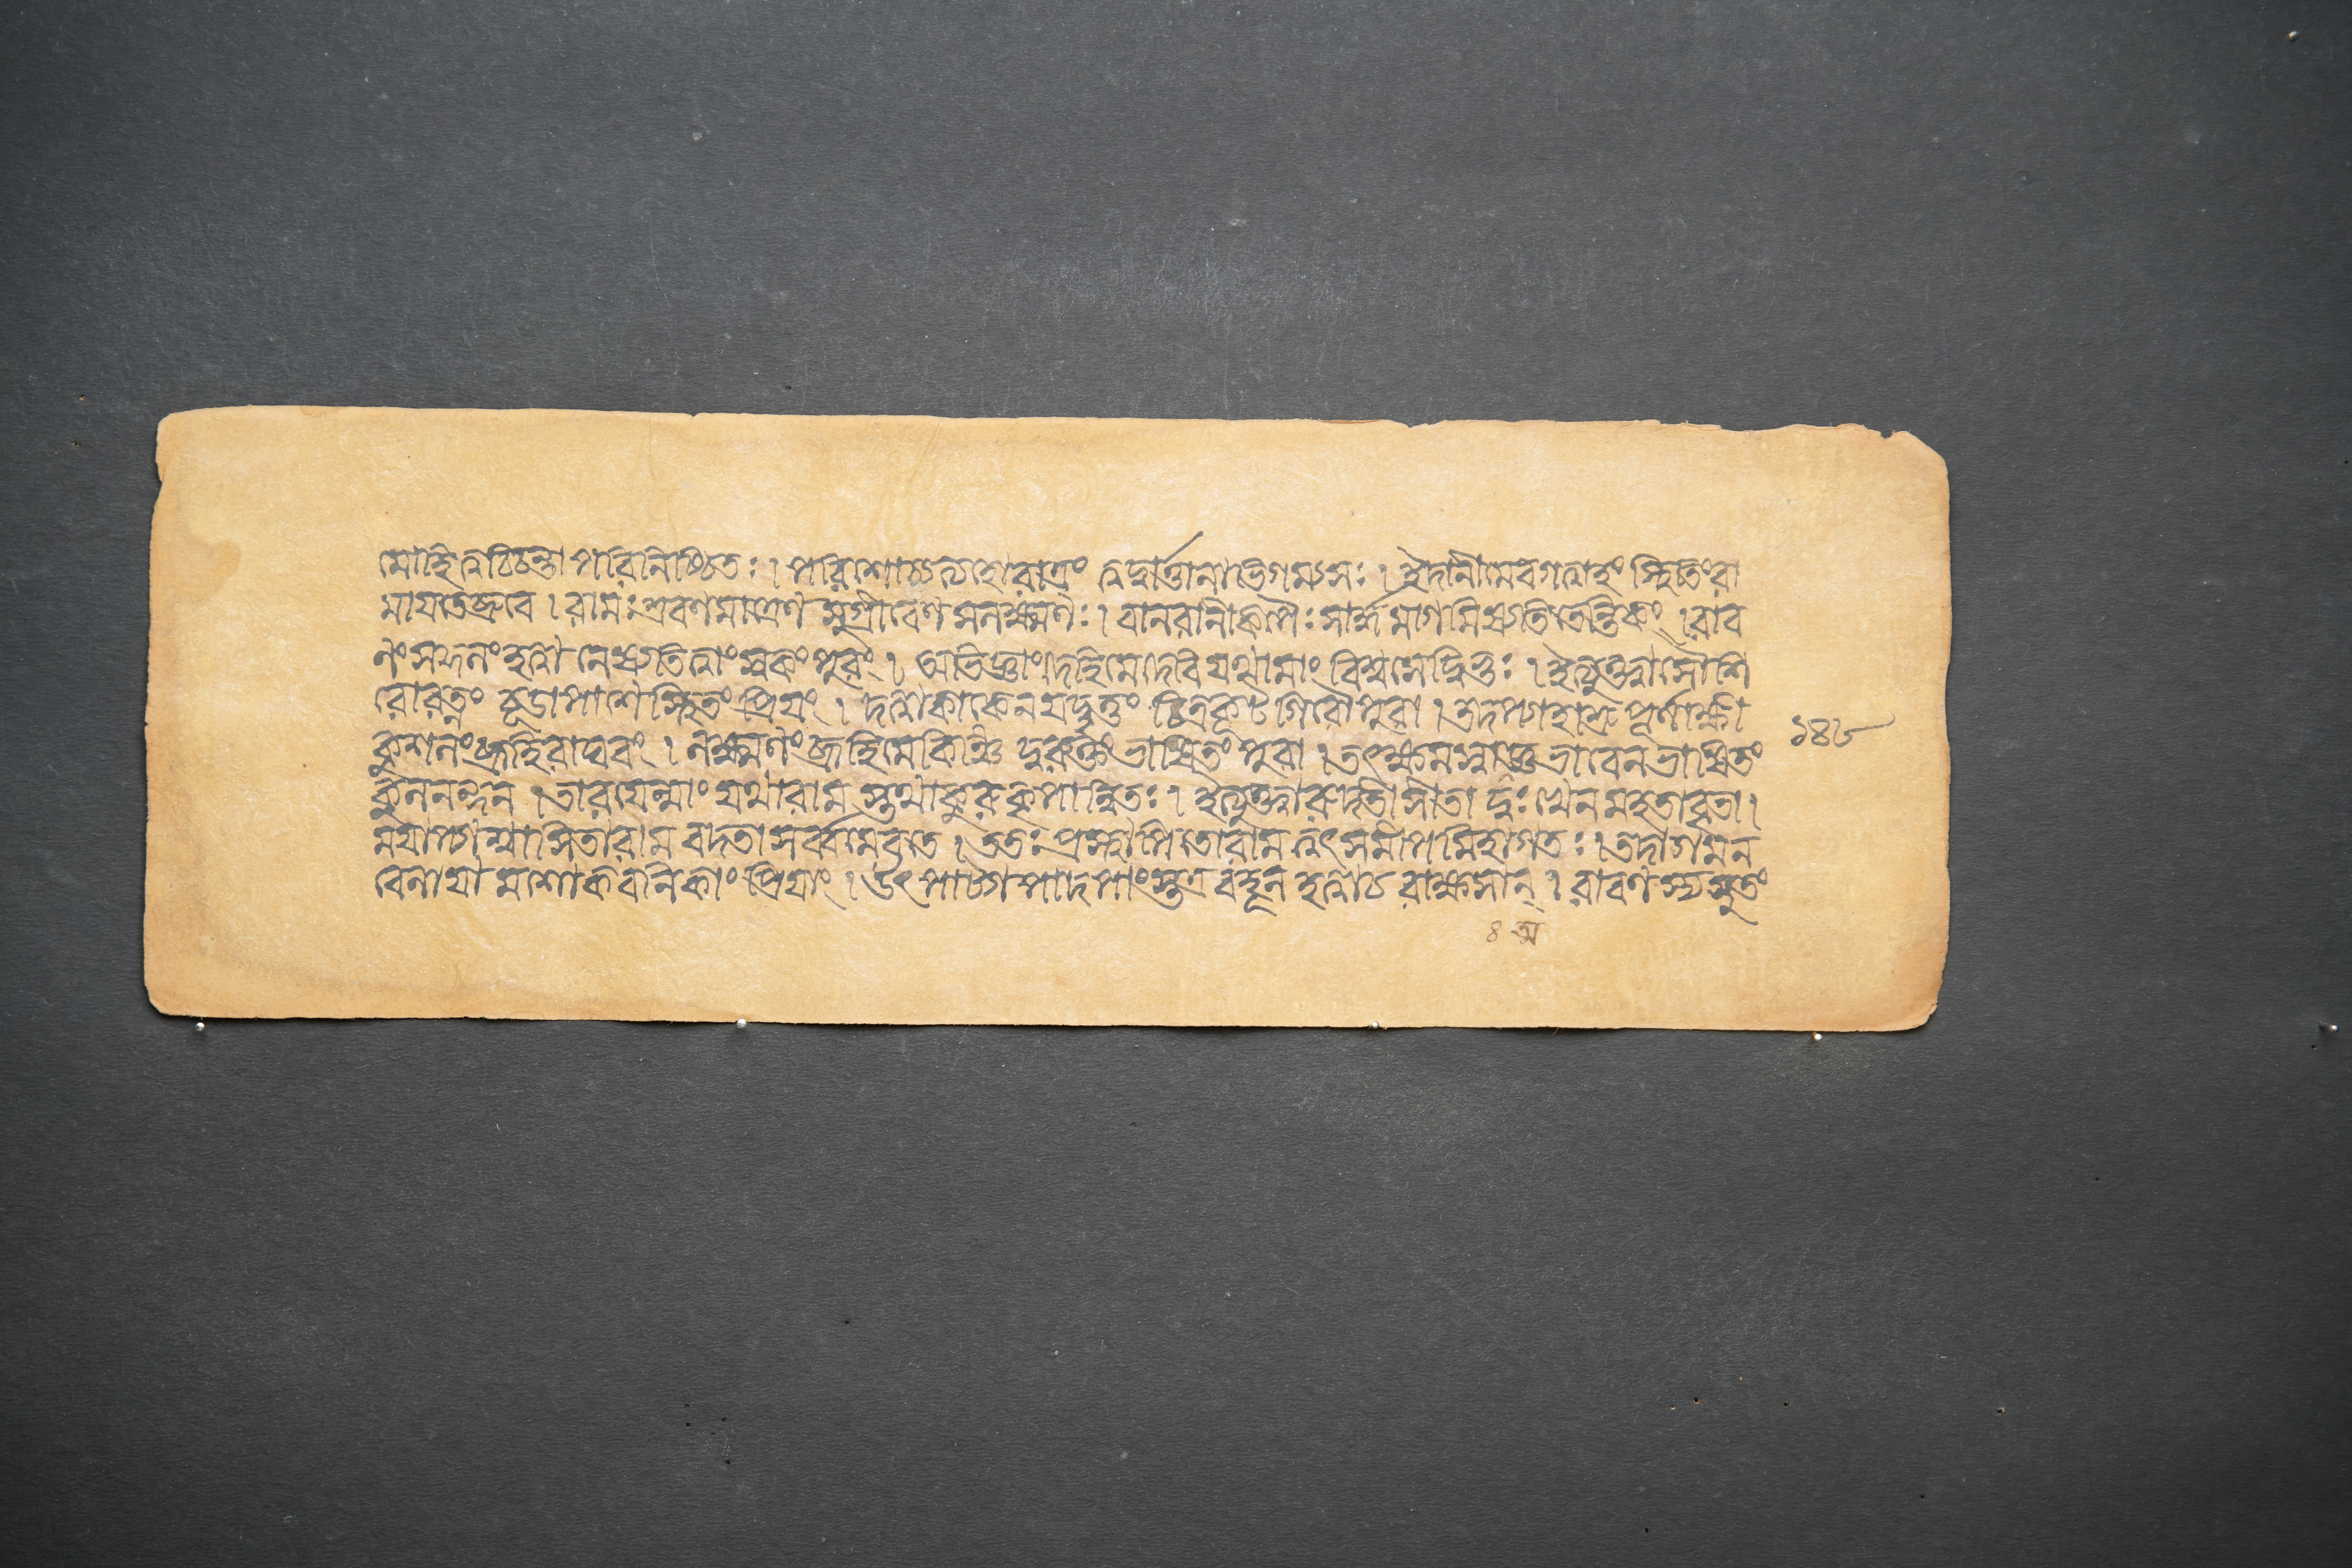 মোহি ত্বচ্চিন্তা পরিনিষ্ঠিতঃ । পরিশোচত্যহোরাত্রং ত্বদ্বার্ত্তানাভিগম্যসঃ । ইদানীমেবগত্বাহং স্থিতিংরা
মাযতেব্রুবে । রামঃ শ্রবণমাত্রেণ সুগ্রীবেণ সলক্ষ্মণঃ । বানরানীকপৈঃ সার্দ্ধমাগমিষ্যতি তেন্তিকং । রাব
ণং সকুলং হত্বা নেষ্যতি ত্বাং স্বকং পুরং । অভিজ্ঞাং দেহিমেদেবি যথামাং বিশ্বসেদ্বিভুঃ । ইত্যুক্তাসৌশি
রোরত্নং চূডাপাশে স্থিতং প্রিযং । দত্বাকাকেনযদ্বৃত্তং চিত্রকূট গিরৌপুরা । তদপ্যাহাশ্রু পূর্ণাক্ষী
কুশলং ব্রূহিরাঘবং । লক্ষ্মণং ব্রূহিমেকিঞ্চি দ্দুরুক্তং ভাষিতং পুরা । তৎক্ষমস্বাজ্ঞ ভাবেন ভাষিতং
কুলনন্দন । তারযেন্মাং যথারাম স্তথাকুরু কৃপান্বিতঃ । ইত্যুক্ত্বারুদতী সীতা দুঃখেন মহতাবৃতা ।
মযাপ্যাশ্বাসিতারাম বদতা সর্ব্বমেবতে । ততঃ প্রস্থাপিতোরাম ত্বৎসমীপমিহাগতঃ । তদাগমন
বেলাযা মশোকবনিকাং প্রিযাং । উৎপাট্য পাদপাংস্তত্র বহূন হত্বাচ রাক্ষসান্ । রাবণস্য সুতং
৪ অ
১৪৮